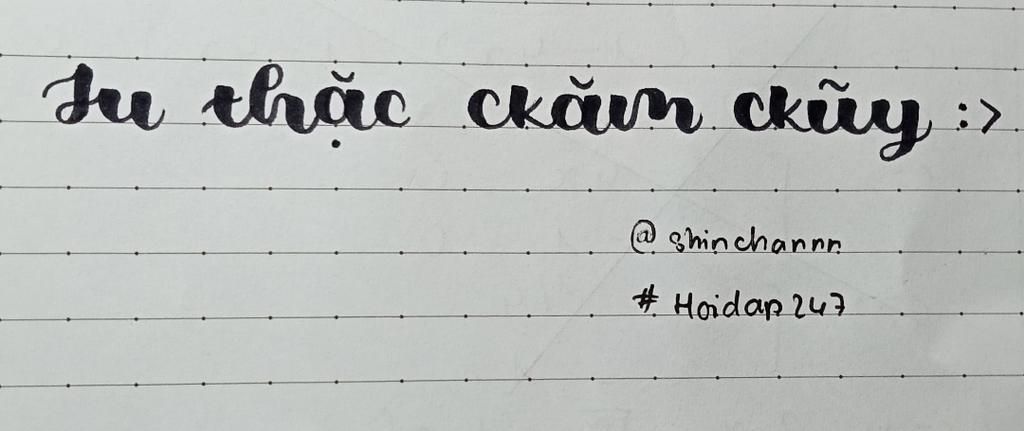 Su thặc ckăm ckũy :>
@shinchannn
#Hoidap247